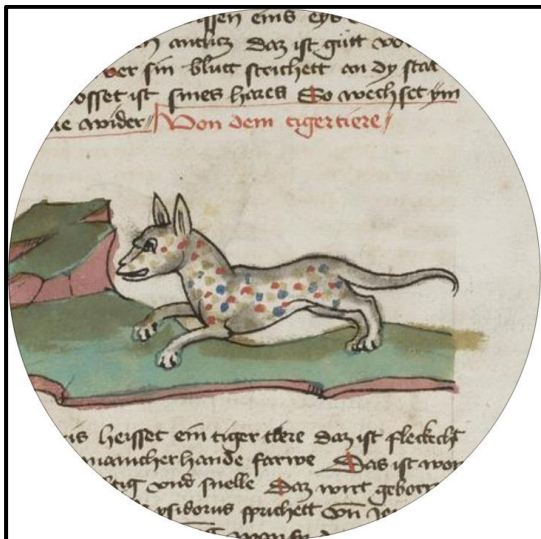 issen eins eyd
antlicz daz ist gůtt vo
ver sin blutt strichett an dy statt
osset ist sines hares So wechset ym
wider Von dem tigertiere
is heisset ein tiger tiere daz ist fleckecht
manicherhande farwe Das ist won
tig vnd snelle Daz wirt geborn
ysidorus sprichett Von